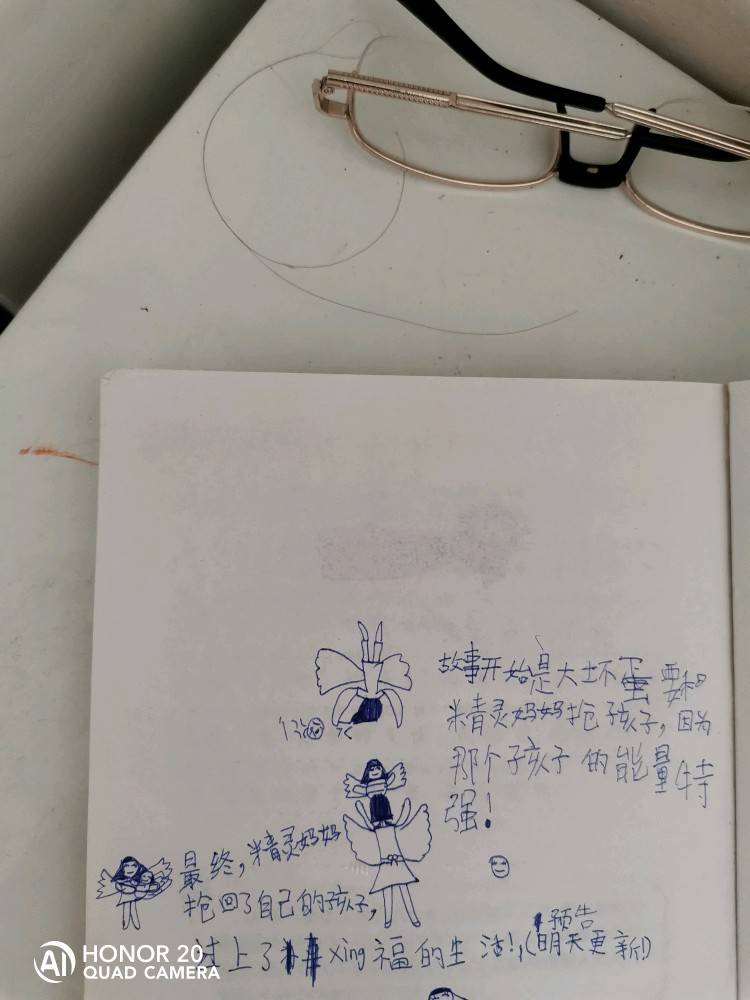 故事开始是大坏蛋要和
精灵妈妈抢孩子，因为
那个孩子的能量特
强！
最终，精灵妈妈
抢回了自己的孩子，
过上了xing福的生活！，（明天更新！）
预告
HONOR 20
QUAD CAMERA
AI